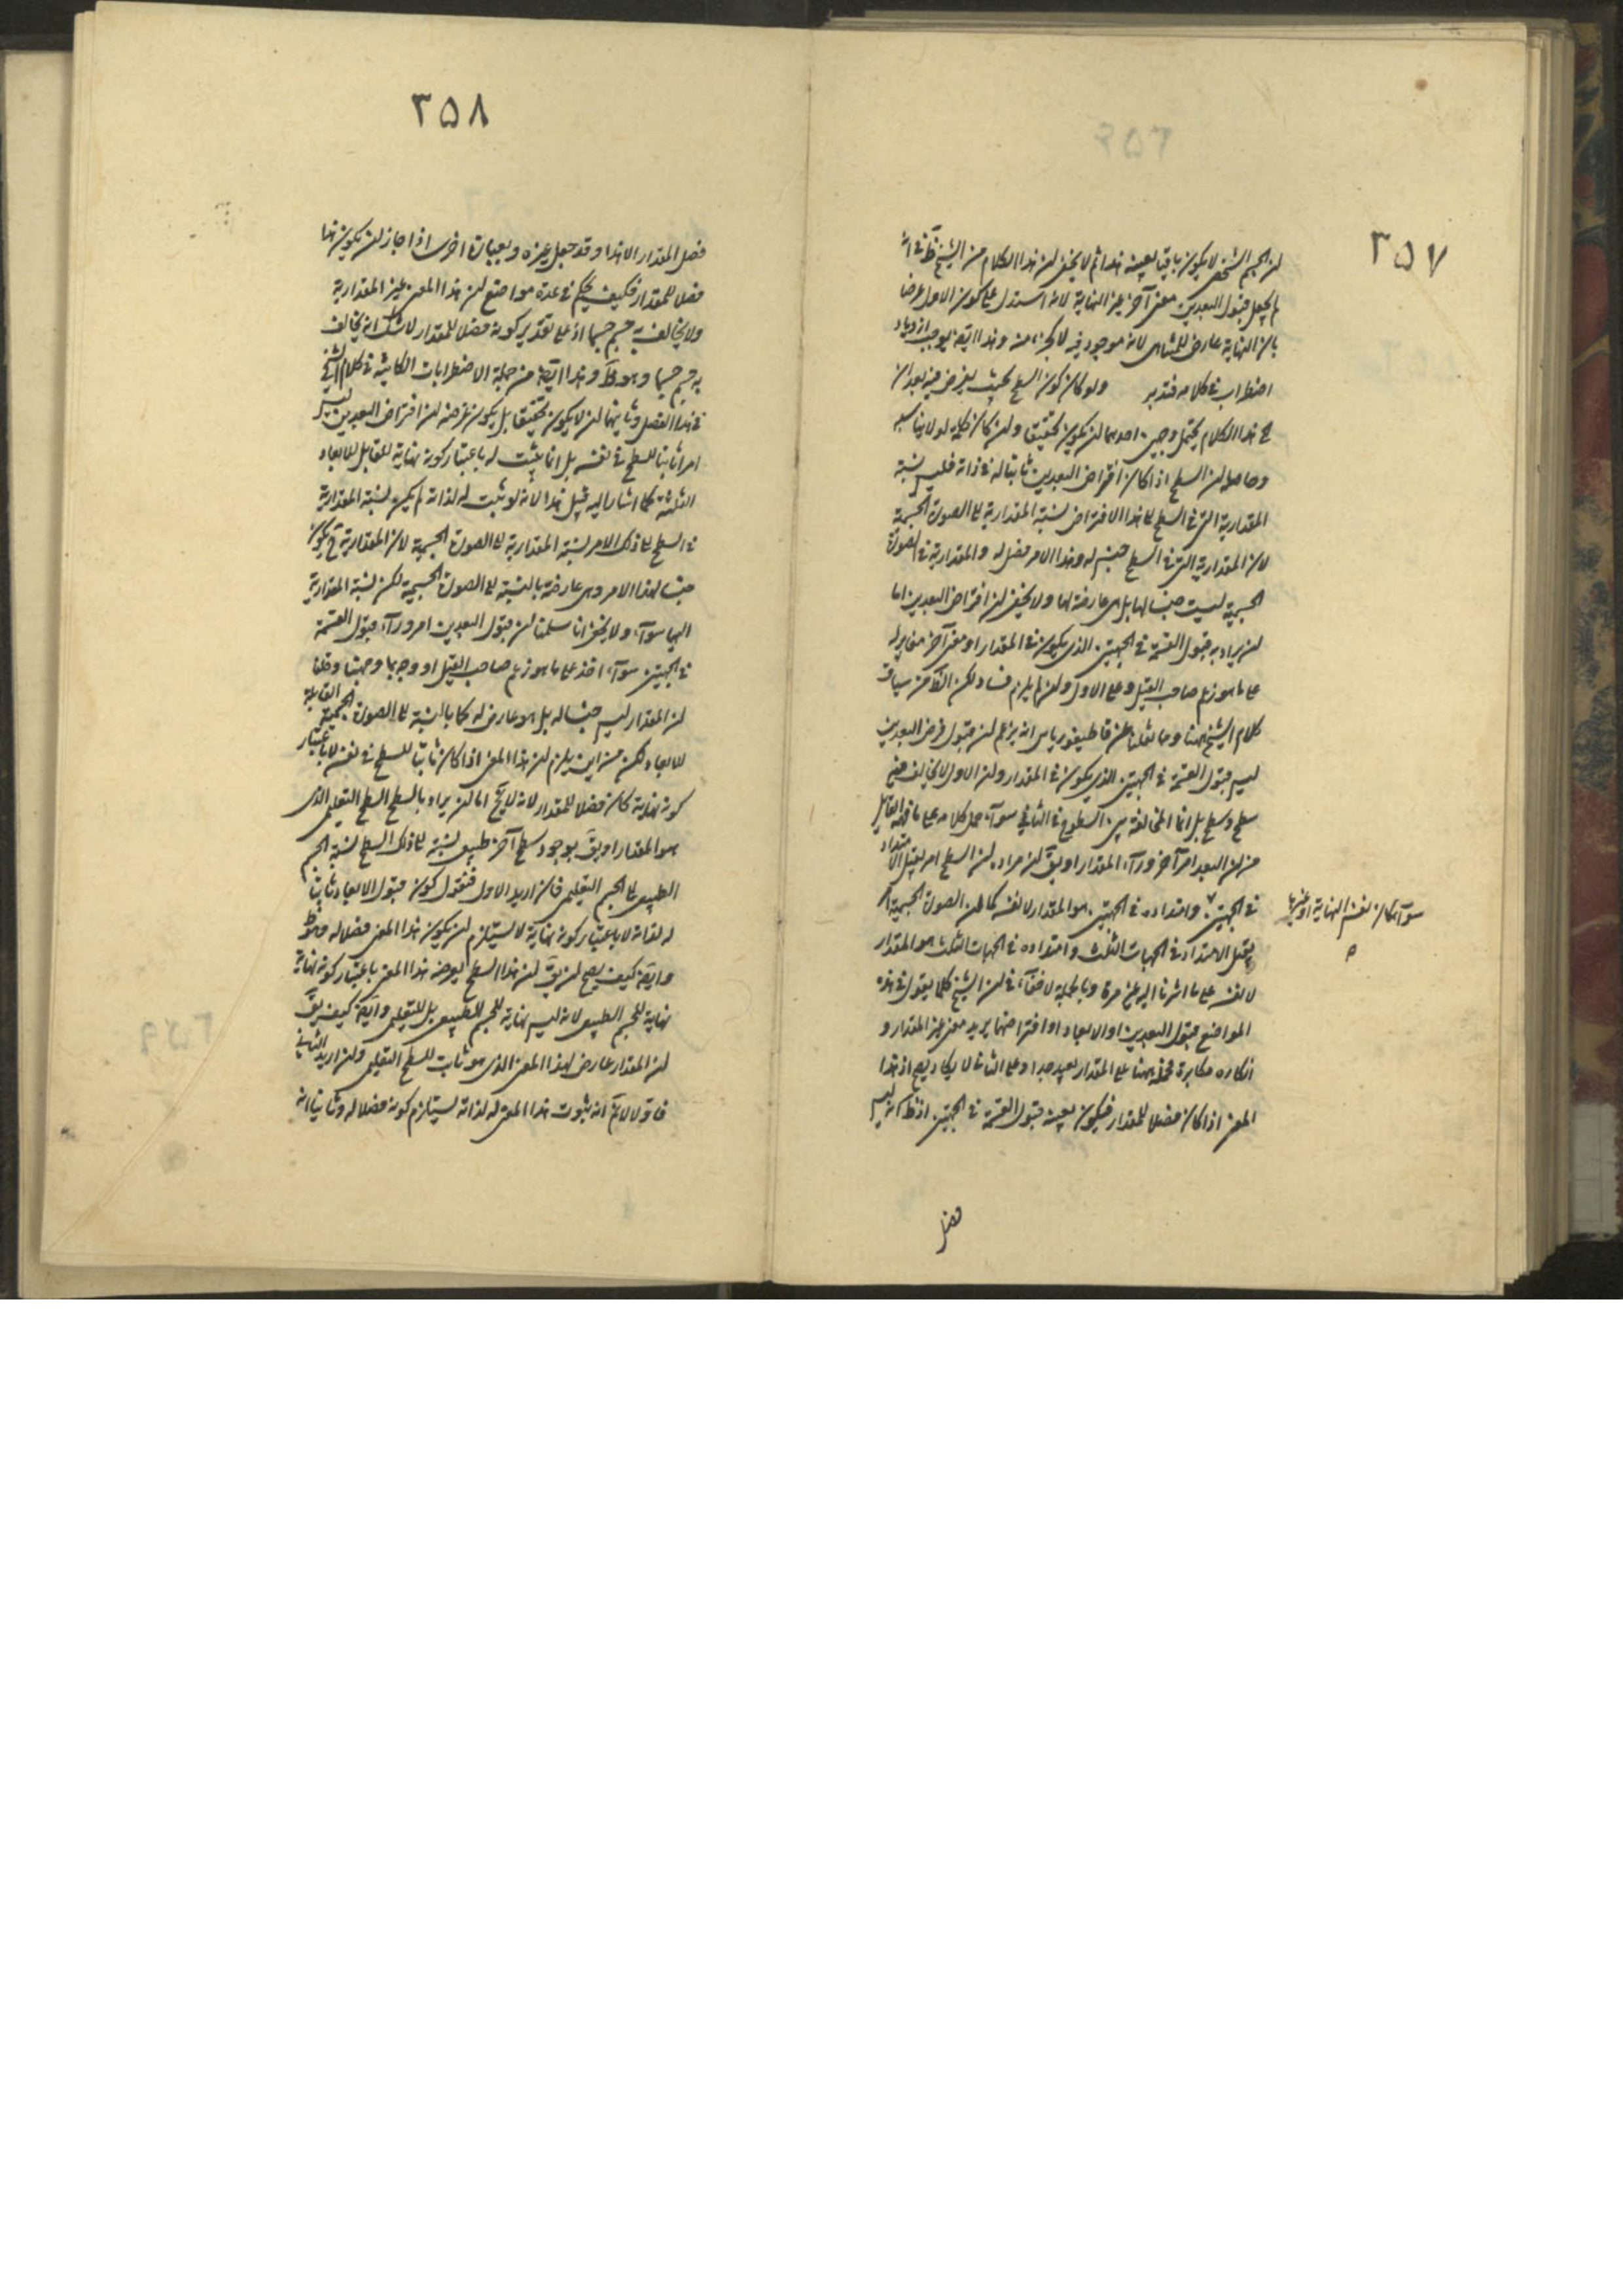 ٣٥٧
ان الجسم الشخصى لا يكون باقيا بعينه هذا ثم لا يخفى ان هذا الكلام من الشيخ ظ فى انه
لم يجعل قبول البعدين معنى آخر غير النهاية لانه استدل على كون الاول عرضا
بان النهاية عارض للمتناهى لانه موجود فيه لا كجزء منه وهذا ايضا يوجب ازدياد
اضطراب فى كلامه فتدبر ولو كان كون السطح بحيث يفرض فيه بعدان
الخ هذا الكلام يحتمل وجهين احدهما ان يكون تحقيق وان كان كلمة لو لا يناسبه
وحاصله ان السطح اذا كان افتراض البعدين ثابتا له فى ذاته فليس نسبة
المقدارية التى فى السطح الى هذا الافتراض نسبة المقدارية الى الصورة الجسمية
لان المقدارية التى فى السطح جنس له وهذا الامر فصل له والمقدارية فى الصورة
الجسمية ليست جنسا لها بل هى عارضة لها ولا يخفى ان افتراض البعدين اما
ان يراد به قبول القسمة فى الجهتين الذى يكون فى المقدار او معنى آخر مغاير له
على ما هو زعم صاحب القيل وعلى الاول وان لم يلزم فساد لكن الظ من سياق
كلام الشيخ ههنا وما نقلنا عن قاطيغورياس انه يزعم ان قبول فرض البعدين
ليس قبول القسمة فى الجهتين الذى يكون فى المقدار وان الاول لا يخالف فيه
سطح وسطح بل انما المخالفة بين السطوح فى الثانى سواء حمل كلامه على ما فهمه القايل
من ان البعد امر آخر وراء المقدار او يق ان مراده ان السطح امر يقبل الامتداد
فى الجهتين وامتداده فى الجهتين هو المقدار لا نفسه كما ان الصورة الجسمية امر
سواء كان نفس النهاية او غيرها
يقبل الامتداد فى الجهات الثلث وامتداده فى الجهات الثلث هو المقدار
لا نفسه على ما اشرنا اليه غير مرة وبالجملة لا خفاء فى ان الشيخ كلما يقول فى هذه
المواضع قبول البعدين او الابعاد او افتراضها يريد معنى غير المقدار و
انكاره مكابرة فحمله ههنا على المقدار بعيد جدا وعلى الثانى لا يكاد يصح اذ هذا
المعنى اذا كان فصلا للمقدار فيكون بعينه قبول القسمة فى الجهتين اذ ظ انه ليس
فصل
٣٥٨
فصل المقدار الا هذا وقد جعل غيره وبعبارة اخرى اذا جاز ان يكون هذا
فصلا للمقدار فكيف يحكم فى عدة مواضع ان هذا المعنى غير المقدارية
ولا يخالف به جسم جسما اذ على تقدير كونه فصلا للمقدار لا شك انه يخالف
به جسم جسما وهو ظ وهذا ايضا من جملة الاضطرابات الكائنة فى كلام الشيخ
فى هذا الفصل وثانيهما ان لا يكون تحقيقا بل يكون غرضه ان افتراض البعدين ليس
امرا ثابتا للسطح فى نفسه بل انما يثبت له باعتبار كونه نهاية للقابل للابعاد
الثلثة كما اشار اليه قبيل هذا لانه لو ثبت له لذاته لم يكن نسبة المقدارية
فى السطح الى ذلك الامر نسبة المقدارية الى الصورة الجسمية لان المقدارية ح يكون
جنسا لهذا الامر وهى عارضة بالنسبة الى الصورة الجسمية لكن نسبة المقدارية
اليها سواء ولا يخفى انا سلمنا ان قبول البعدين امر وراء قبول القسمة
فى الجهتين سواء اخذ على ما هو زعم صاحب القيل او وجه بما وجهنا وقلنا
ان المقدار ليس جنسا له بل هو عارض له كما بالنسبة الى الصورة الجسمية القابلة
للابعاد لكن من اين يلزم ان هذا المعنى اذا كان ثابتا للسطح فى نفسه لا باعتبار
كونه نهاية كان فصلا للمقدار لانه لا يخ اما ان يراد بالسطح السطح التعليمى الذى
هو المقدار او يق بوجود سطح آخر طبيعى نسبته الى ذلك السطح نسبة الجسم
الطبيعى الى الجسم التعليمى فان اريد الاول فنقول كون قبول الابعاد ثابتا
له لذاته لا باعتبار كونه نهاية لا يستلزم ان يكون هذا المعنى فصلا له وهو ظ
وايضا كيف يصح ان يق ان هذا السطح يعرضه هذا المعنى باعتبار كونه نهاية
نهاية للجسم الطبيعى لانه ليس نهاية للجسم الطبيعى بل للتعليمى وايضا كيف يق
ان المقدار عارض لهذا المعنى الذى هو ثابت للسطح التعليمى وان اريد الثانى
فاقول لا نم انه ثبوت هذا المعنى له لذاته يستلزم كونه فصلا له وثانيا انه